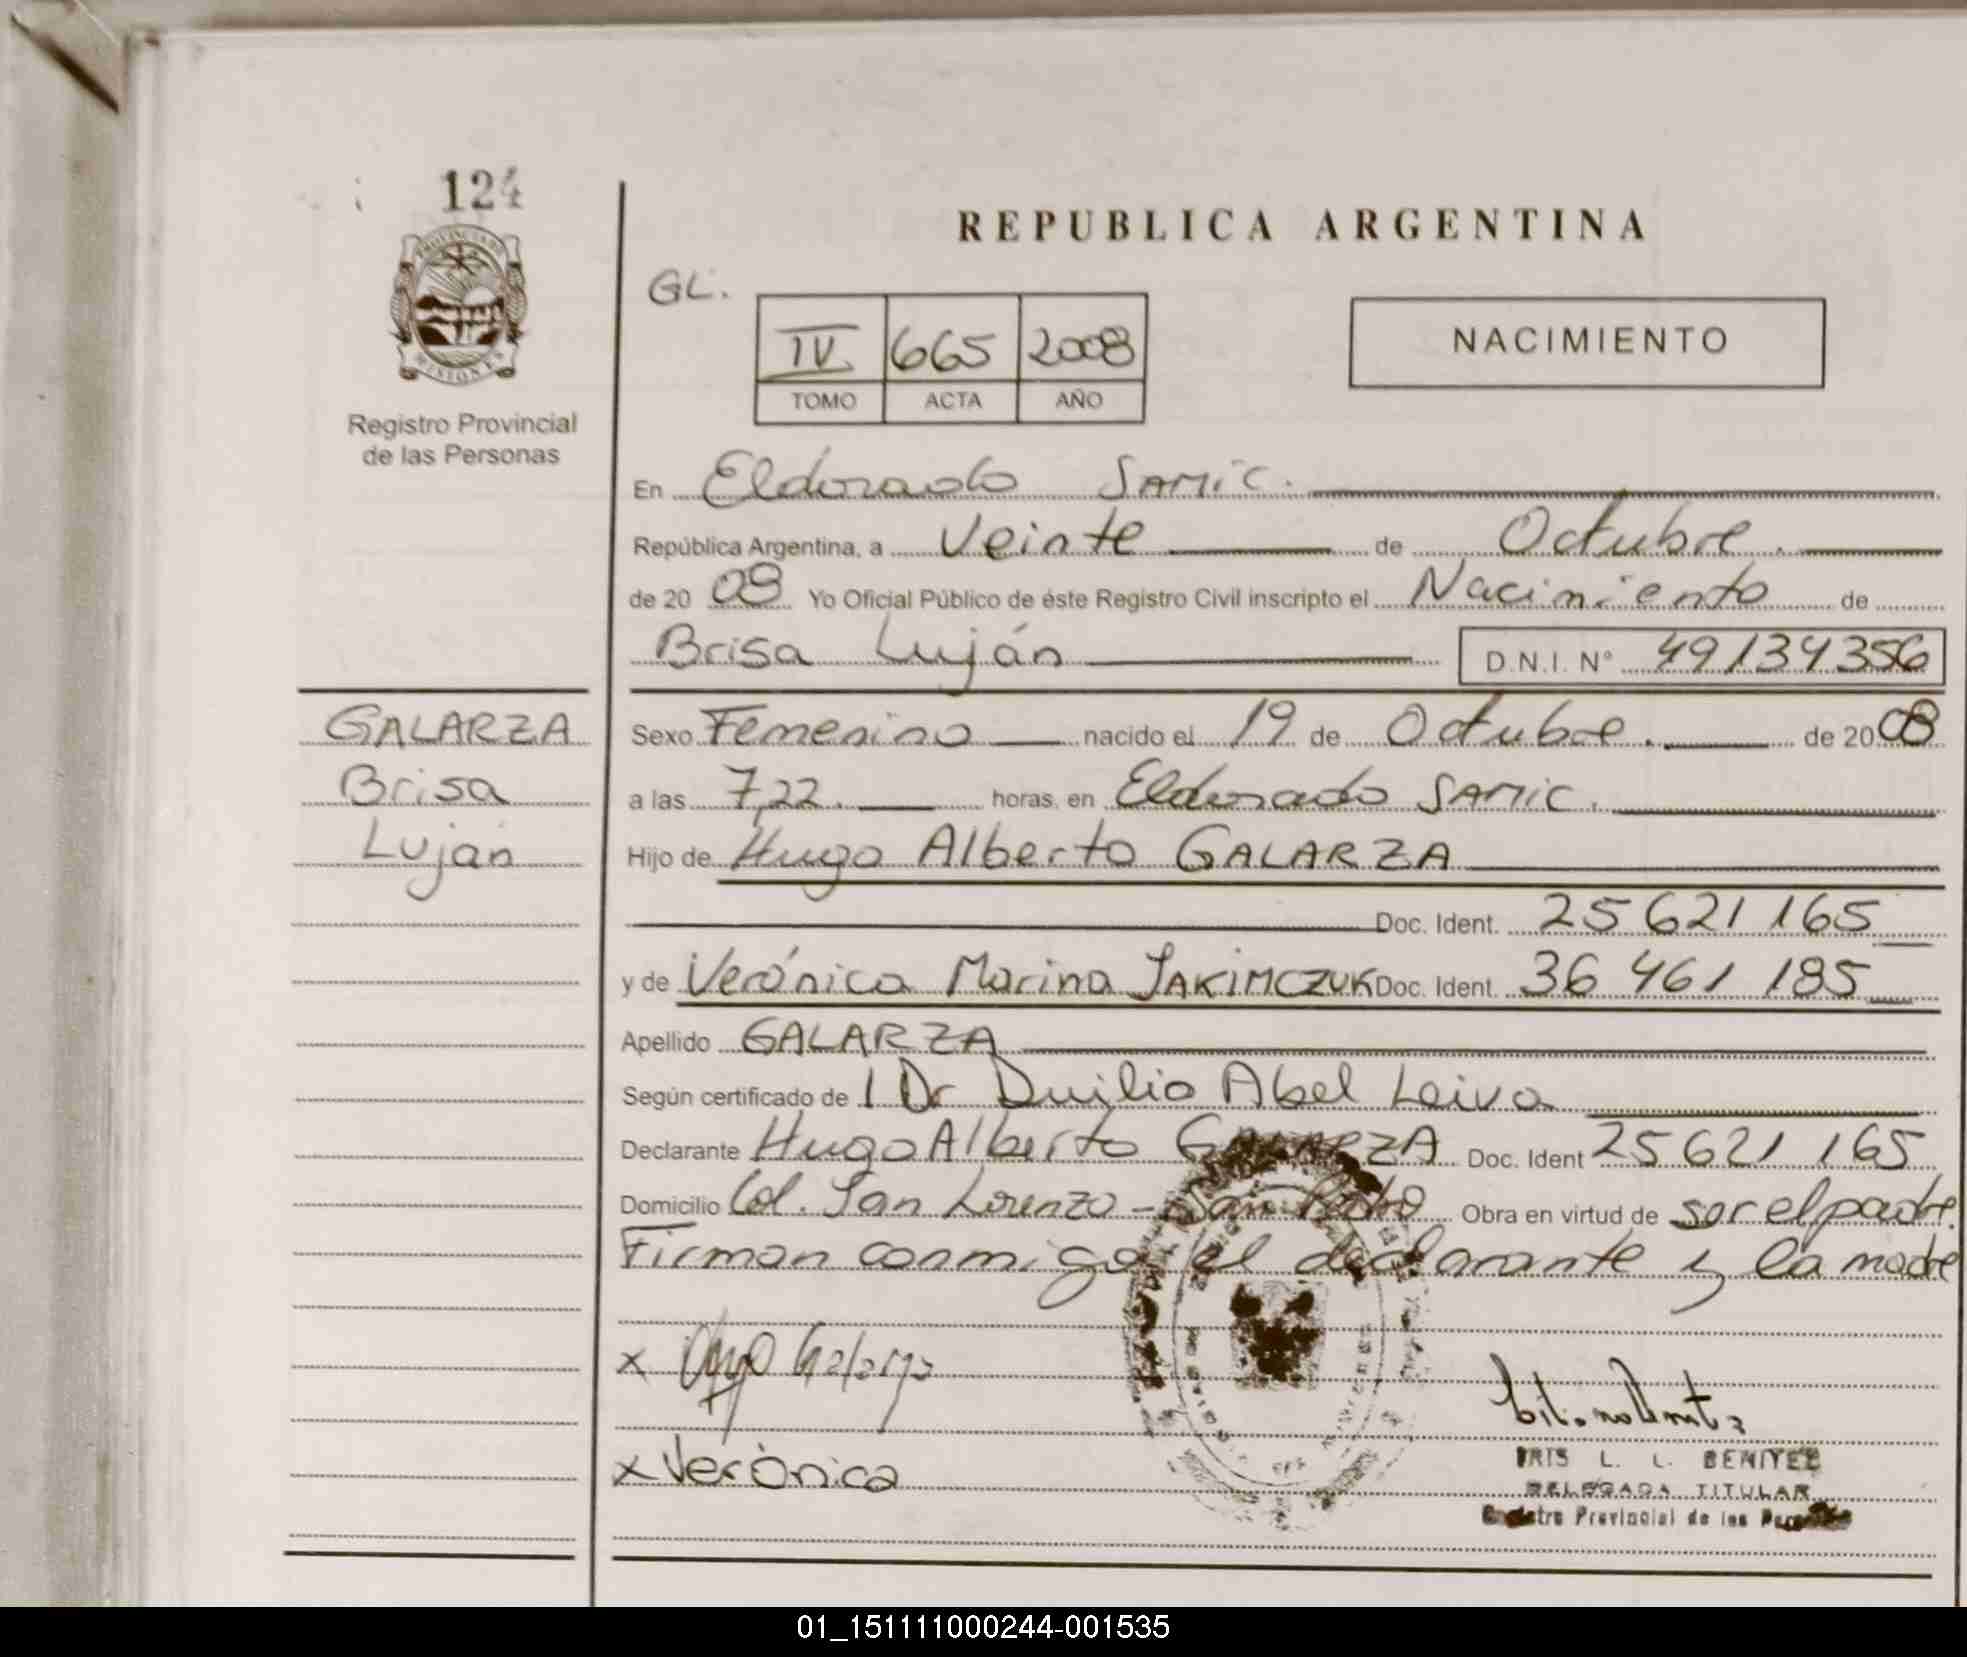 124
REPUBLICA ARGENTINA
PROVINCIA DE
MISIONES
GL.
IV 665 2008
TOMO ACTA AÑO
NACIMIENTO
Registro Provincial
de las Personas
En Eldorado SAMIC.
República Argentina, a Veinte de Octubre.
de 2008 Yo Oficial Público de éste Registro Civil inscripto el Nacimiento de
Brisa Luján D.N.I. Nº 49134356
GALARZA
Brisa
Luján
Sexo Femenino nacido el 19 de Octubre. de 2008
a las 7,22. horas, en Eldorado SAMIC.
Hijo de Hugo Alberto GALARZA
Doc. Ident. 25 621 165
y de Verónica Marina JAKIMCZUK Doc. Ident. 36 461 185
Apellido GALARZA
Según certificado de l Dr Duilio Abel Leiva
Declarante Hugo Alberto GALARZA Doc. Ident 25 621 165
Domicilio Col. San Lorenzo - San Pedro Obra en virtud de ser el padre.
Firman conmigo el declarante y la madre
x Hugo Galarza
x Verónica
IRIS L. L. BENITEZ
DELEGADA TITULAR
Registro Provincial de las Personas
01_151111000244-001535